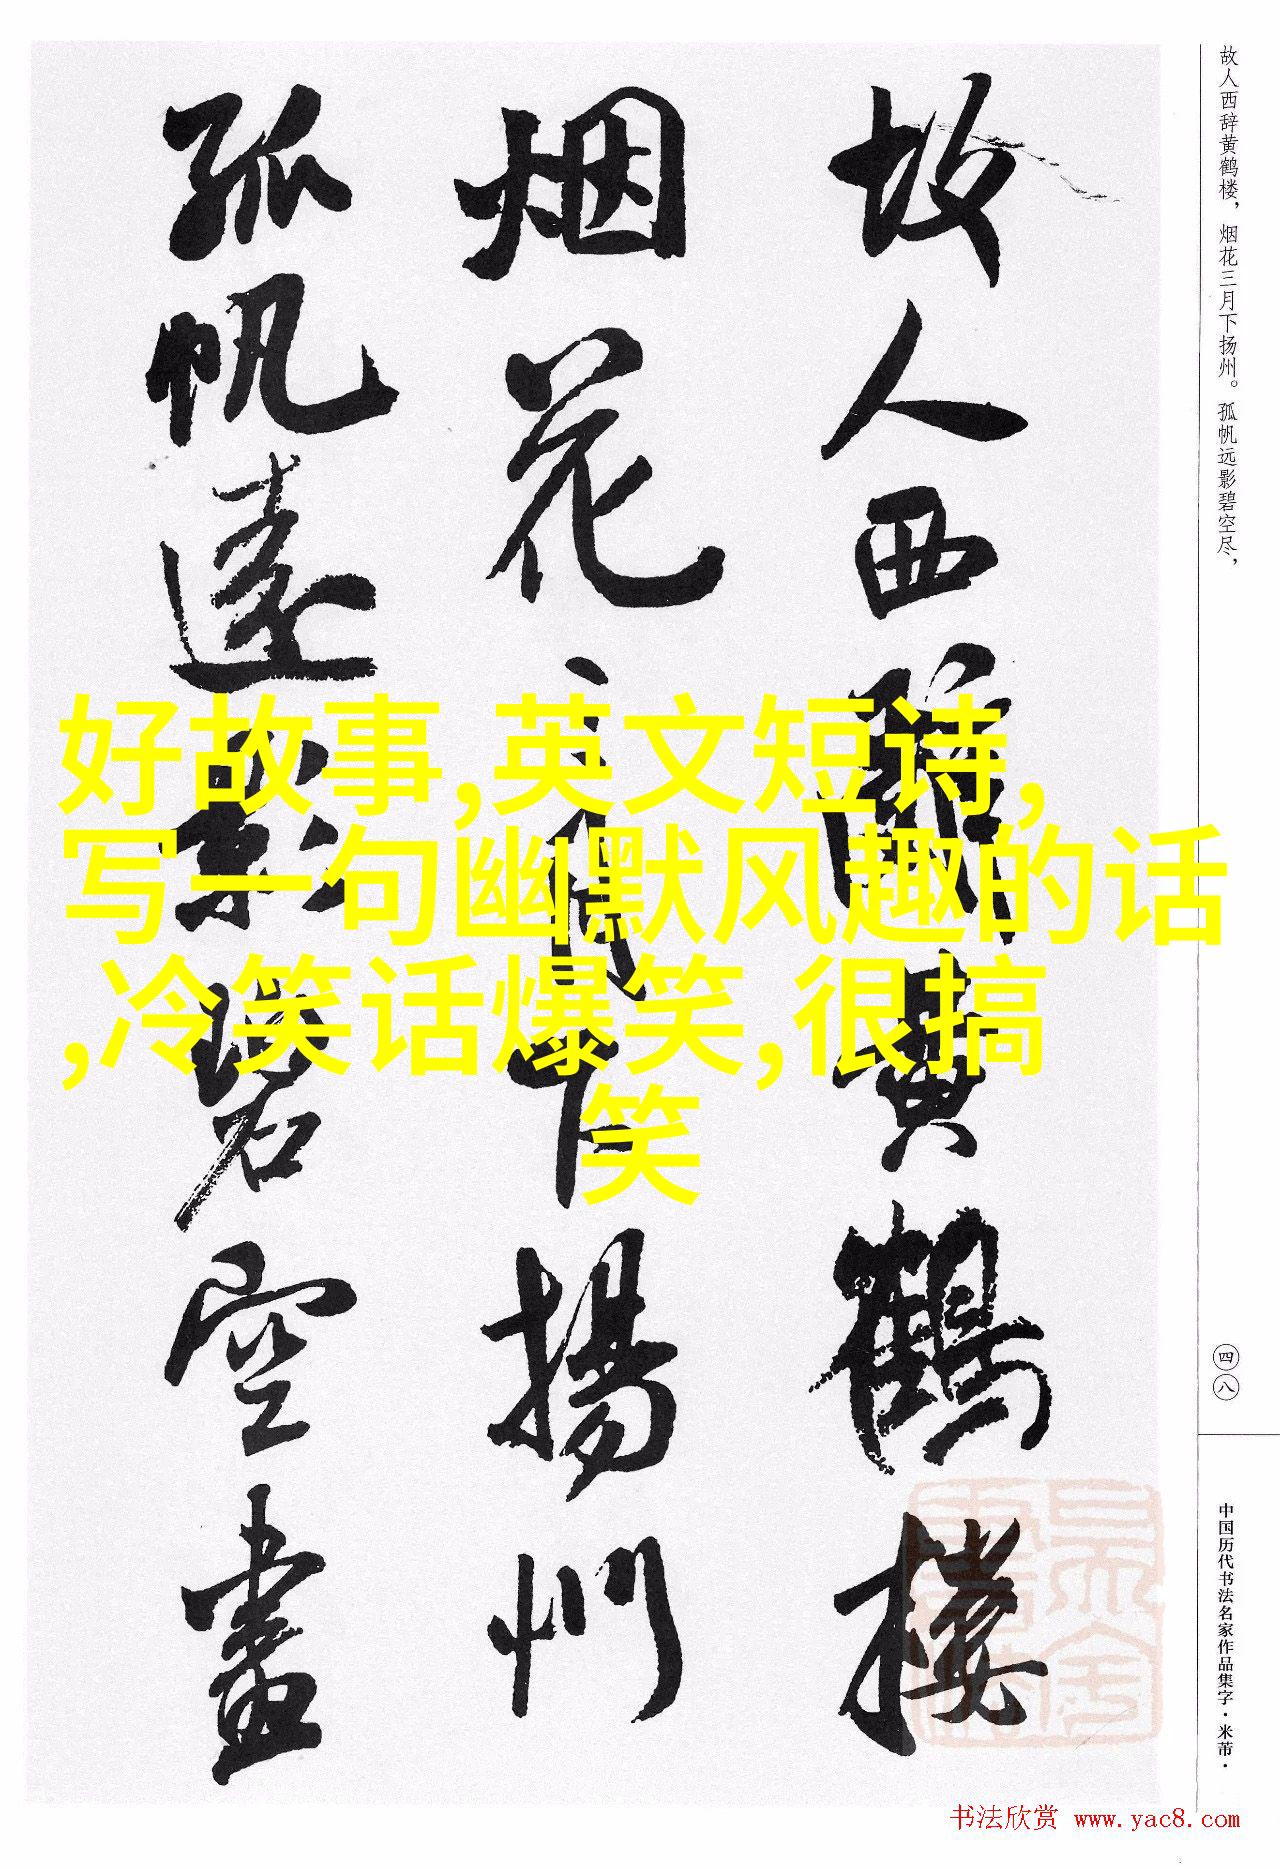 故人西辞黄鹤楼，烟花三月下扬州。孤帆远影碧空尽，
故人西辭黄鹤樓
烟花三月下揚州
孤帆遠影碧空盡
好故事,英文短诗,
写一句幽默风趣的话
,冷笑话爆笑,很搞
笑
四八
中国历代书法名家作品集字·米芾·
书法欣赏 www.yac8.com